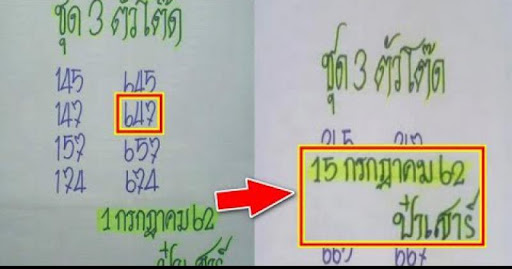 ชุด 3 ตัวโต๊ด
145 645
147 647
157 657
174 674
1 กรกฎาคม 62
ป๋าเสาร์
ชุด 3 ตัวโต๊ด
15 กรกฎาคม 62
ป๋าเสาร์